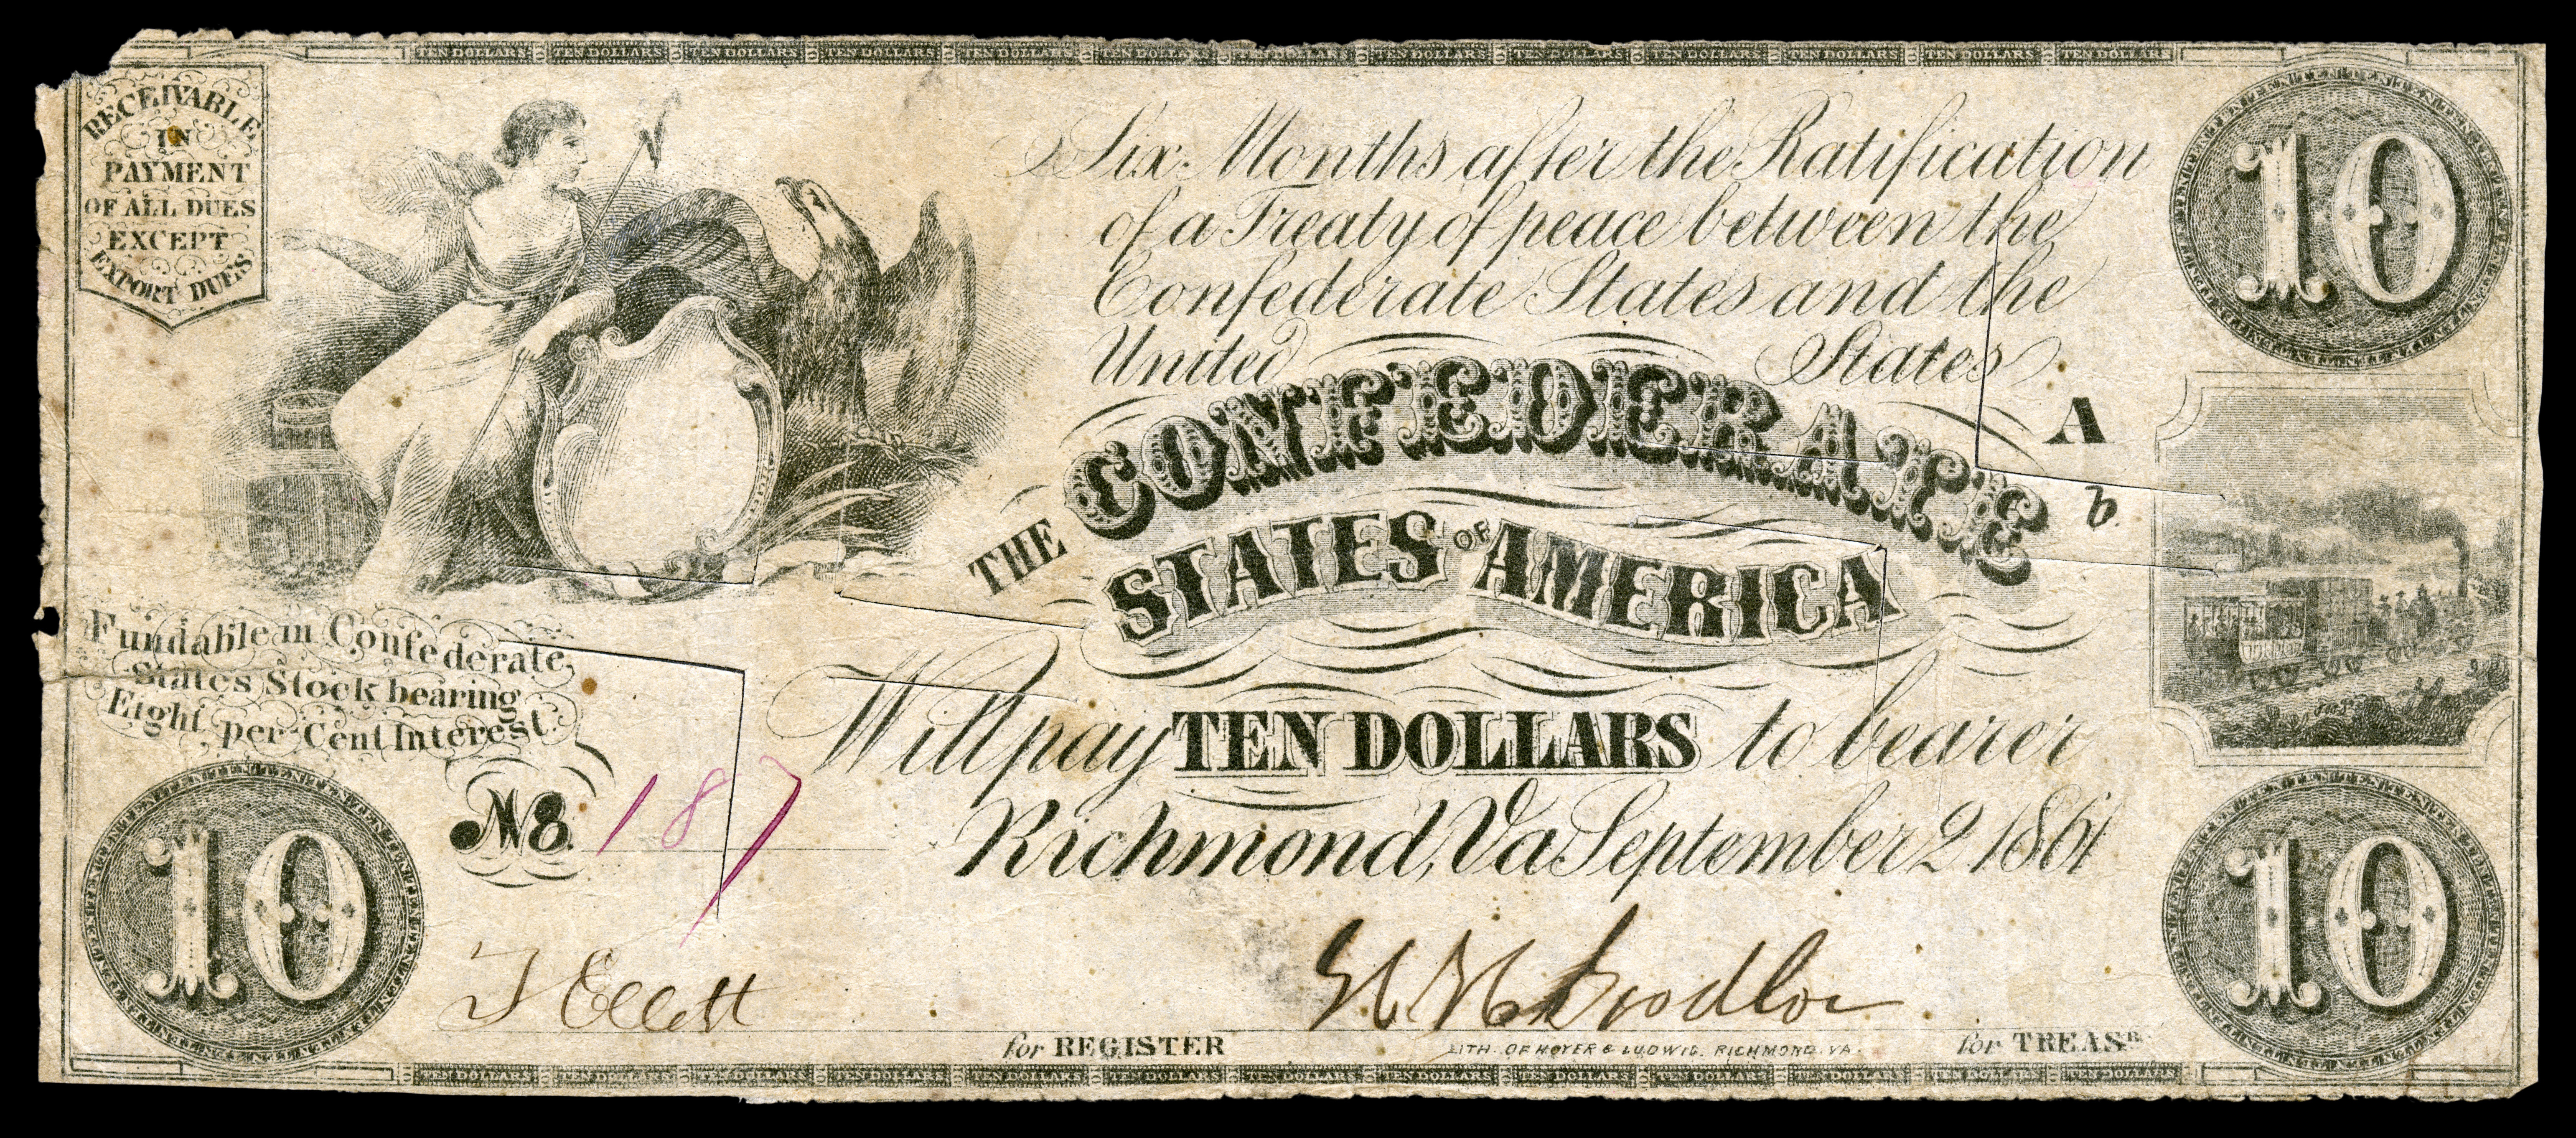 TEN DOLLARS TEN DOLLARS TEN DOLLARS TEN DOLLARS TEN DOLLARS TEN DOLLARS TEN DOLLARS TEN DOLLARS TEN DOLLARS TEN DOLLARS TEN DOLLARS TEN DOLLARS TEN DOLLARS
RECEIVABLE
IN
PAYMENT
OF ALL DUES
EXCEPT
EXPORT DUES
10
Six Months after the Ratification
of a Treaty of peace between the
Confederate States and the
United States
A
b.
THE CONFEDERATE
STATES OF AMERICA
Fundable in Confederate
States Stock bearing
Eight per Cent Interest.
Will pay TEN DOLLARS to bearer
No. 187
Richmond, Va September 2 1861
10
10
T Ellett
for REGISTER
LITH. OF HOYER & LUDWIG. RICHMOND. VA.
for TREASR
TEN DOLLARS TEN DOLLARS TEN DOLLARS TEN DOLLARS TEN DOLLARS TEN DOLLARS TEN DOLLARS TEN DOLLARS TEN DOLLARS TEN DOLLARS TEN DOLLARS TEN DOLLARS TEN DOLLARS